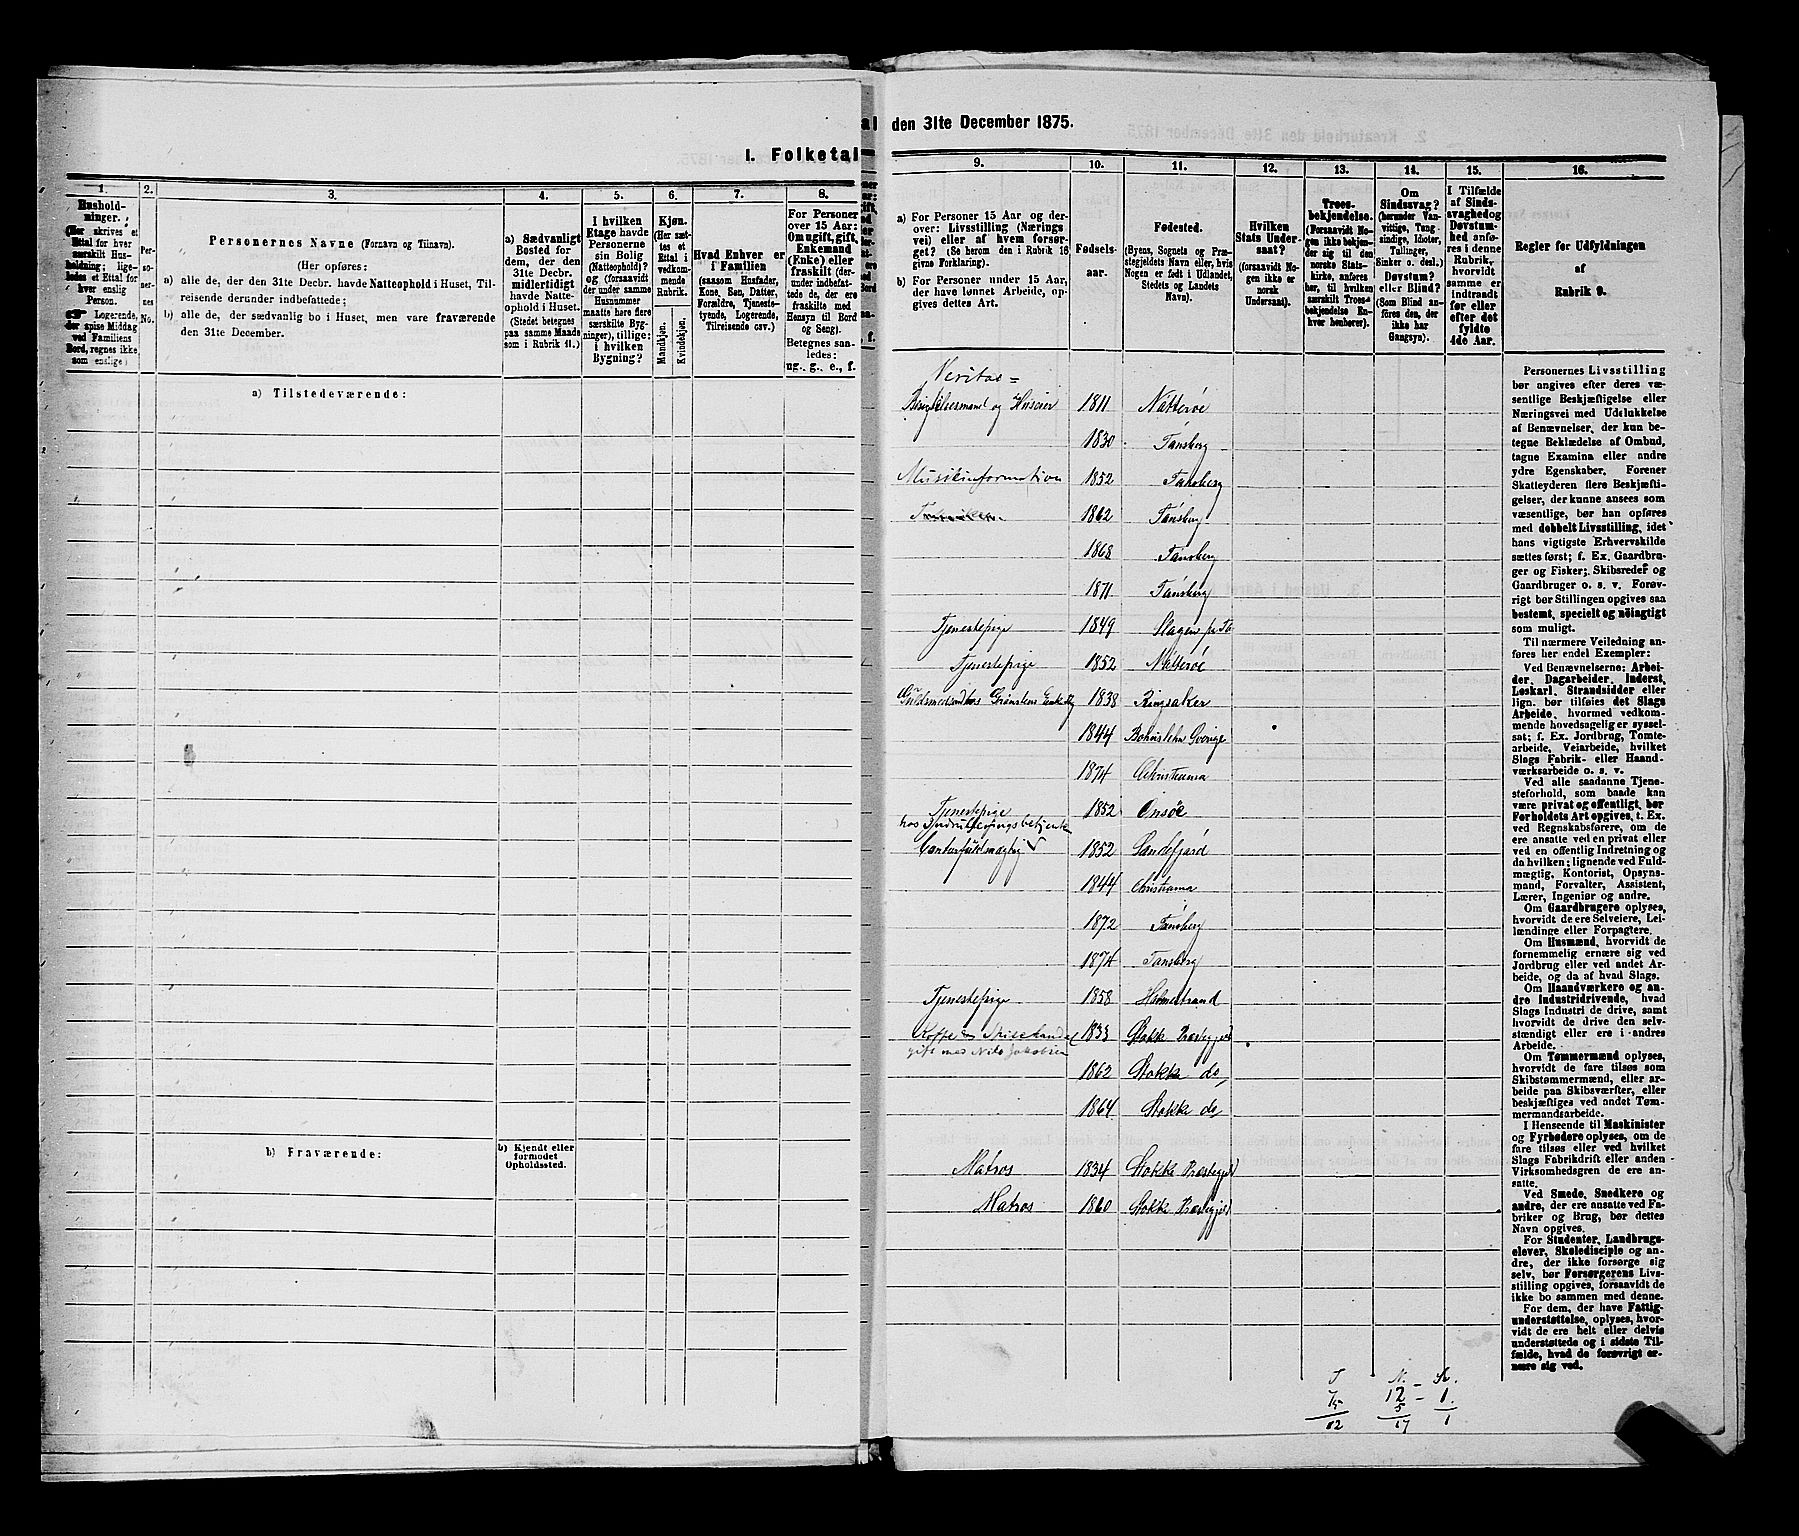 I. Folketal
1.
Husholdninger.
(Her skrives et
Ettal for hver
særskilt Husholdning;
ligeledes et Ettal for
hver enslig
Person.
Logerende,
der spise Middag
ved Familiens
Bord, regnes ikke
som enslige)
2.
Personernes
No.
3.
Personernes Navne (Fornavn og Tilnavn).
(Her opføres:
a) alle de, der den 31te Decbr. havde Natteophold i Huset, Tilreisende
derunder indbefattede;
b) alle de, der sædvanlig bo i Huset, men vare fraværende
den 31te December.
4.
a) Sædvanligt
Bosted for
dem, der den
31te Decbr.
midlertidigt
havde Natteophold
i Huset.
(Stedet betegnes
paa samme Maade
som i Rubrik 11.)
5.
I hvilken
Etage havde
Personerne
sin Bolig
(Natteophold)?
og (forsaavidt
der under samme
Husnummer
maatte høre flere
særskilte Bygninger),
tillige:
i hvilken
Bygning?
6.
Kjøn.
(Her sættes
et
Ettal i
vedkommende
Rubrik.
Mandkjøn.
Kvindekjøn.
7.
Hvad Enhver er
i Familien
(saasom Husfader,
Kone, Søn, Datter,
Forældre, Tjenestetyende,
Logerende,
Tilreisende osv.)
8.
For Personer
over 15 Aar:
Om ugift, gift,
Enkemand
(Enke) eller
fraskilt (derunder
indbefattede
de, der ere
fraskilte med
Hensyn til Bord
og Seng).
Betegnes saaledes:
ug., g., e., f.
a) Tilstedeværende:
b) Fraværende:
b) Kjendt eller
formodet
Opholdssted.
den 31te December 1875.
9.
a) For Personer 15 Aar og derover:
Livsstilling (Næringsvei)
eller af hvem forsørget?
(Se herom den i Rubrik 16
givne Forklaring).
b) For Personer under 15 Aar,
der have lønnet Arbeide, opgives
dettes Art.
10.
Fødselsaar.
11.
Fødested.
(Byens, Sognets og Præstegjeldets
Navn eller, hvis
Nogen er født i Udlandet,
Stedets og Landets
Navn).
12.
Hvilken
Stats Undersaat?
(forsaavidt Nogen
ikke er
norsk
Undersaat).
13.
Troesbekjendelse.
(Forsaavidt Nogen
ikke bekjender
sig til den
norske Statskirke,
anføres
her, til hvilken
særskilt Troesbekjendelse
Enhver
henhører).
14.
Om
Sindssvag?
(herunder Vanvittige,
Tungsindige,
Idioter,
Tullinger,
Sinker o. desl.)
Døvstum?
eller Blind?
(Som Blind anføres
den, der
ikke har
Gangsyn).
15.
I Tilfælde
af Sindssvaghed
og
Døvstumhed
anføres
i denne
Rubrik,
hvorvidt
samme er
indtraadt
før eller
efter det
fyldte
4de Aar.
16.
Regler for Udfyldningen
af
Rubrik 9.
Veritas =
og Huseier 1811 Nøtterøe
1830 Tønsberg
Musikinformation 1852 Tønsberg
1862 Tønsberg
1868 Tønsberg
1871 Tønsberg
Tjenestepige 1849 Slagen
Tjenestepige 1852 Nøtterøe
Guldsmed 1838 Ringsaker
1844 Bohuslehn Sverige
1874 Christiania
Tjenestepige 1852 Onsøe
hos
1852 Sandefjord
1844 Christiania
1872 Tønsberg
1874 Tønsberg
Tjenestepige 1858 Holmestrand
Kaffe og Spisehandel 1833 Stokke Præstegjeld
gift med Nils Jakobsen
1862 Stokke do
1864 Stokke do
Matros 1834 Stokke Præstegjeld
Matros 1860 Stokke Præstegjeld
12 - 1.
5
17 1
Personernes Livsstilling
bør angives efter deres væsentlige
Beskjæftigelse eller
Næringsvei med Udelukkelse
af Benævnelser, der kun betegne
Beklædelse af Ombud,
tagne Examina eller andre
ydre Egenskaber. Forener
Skatteyderen flere Beskjæftigelser,
der kunne ansees som
væsentlige, bør han opføres
med dobbelt Livsstilling, idet
hans vigtigste Erhvervskilde
sættes først; f. Ex. Gaardbruger
og Fisker; Skibsreder og
Gaardbruger o. s. v. Forøvrigt
bør Stillingen opgives saa
bestemt, specielt og nöiagtigt
som muligt.
Til nærmere Veiledning anføres
her endel Exempler:
Ved Benævnelserne: Arbeider,
Dagarbeider, Inderst,
Løskarl, Strandsidder eller
lign. bør tilføies det Slags
Arbeide, hvormed vedkommende
hovedsagelig er sysselsat;
f. Ex. Jordbrug, Tomtearbeide,
Veiarbeide, hvilket
Slags Fabrik- eller Haandværksarbeide
o. s. v.
Ved alle saadanne Tjenesteforhold,
som baade kan
være privat og offentligt, bør
Forholdets Art opgives, t. Ex.
ved Regnskabsførere, om de
ere ansatte ved en privat eller
ved en offentlig Indretning og
da hvilken; lignende ved Fuldmægtig,
Kontorist, Opsynsmand,
Forvalter, Assistent,
Lærer, Ingeniør og andre.
Om Gaardbrugere oplyses,
hvorvidt de ere Selveiere, Leilændinge
eller Forpagtere.
Om Husmænd, hvorvidt de
fornemmelig ernære sig ved
Jordbrug eller ved andet Arbeide,
og da af hvad Slags.
Om Haandværkere og andre
Industridrivende, hvad
Slags Industri de drive, samt
hvorvidt de drive den selvstændigt
eller ere i andres
Arbeide.
Om Tømmermænd oplyses,
hvorvidt de fare tilsøs som
Skibstømmermænd, eller arbeide
paa Skibsværfter, eller
beskjæftiges ved andet Tømmermandsarbeide.
I Henseende til Maskinister
og Fyrbødere oplyses, om de
fare tilsøs eller ved hvilket
Slags Fabrikdrift eller anden
Virksomhedsgren de ere ansatte.
Ved Smede, Snedkere og
andre, der ere ansatte ved Fabriker
og Brug, bør dettes
Navn opgives.
For Studenter, Landbrugselever,
Skoledisciple og andre,
der ikke forsørge sig
selv, bør Forsørgerens Livsstilling
opgives, forsaavidt de
ikke bo sammen med denne.
For dem, der have Fattigunderstøttelse,
oplyses, hvorvidt
de ere helt eller delvis
understøttede og i sidste Tilfælde,
hvad de forøvrigt ernære
sig ved.